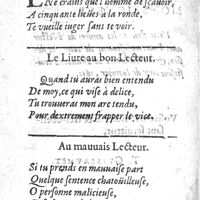 Ne crains que l'homme de sçauoir,
A cinquante lieües à la ronde,
Te vueille iuger sans te voir.
Le Liure au bon Lecteur.
Quand tu auras bien entendu
De moy, ce qui vise à delice,
Tu trouueras mon arc tendu,
Pour dextrement frapper le vice.
Au mauuais Lecteur.
Si tu prends en mauuaise part
Quelque sentence chatoüilleuse,
O personne malicieuse,